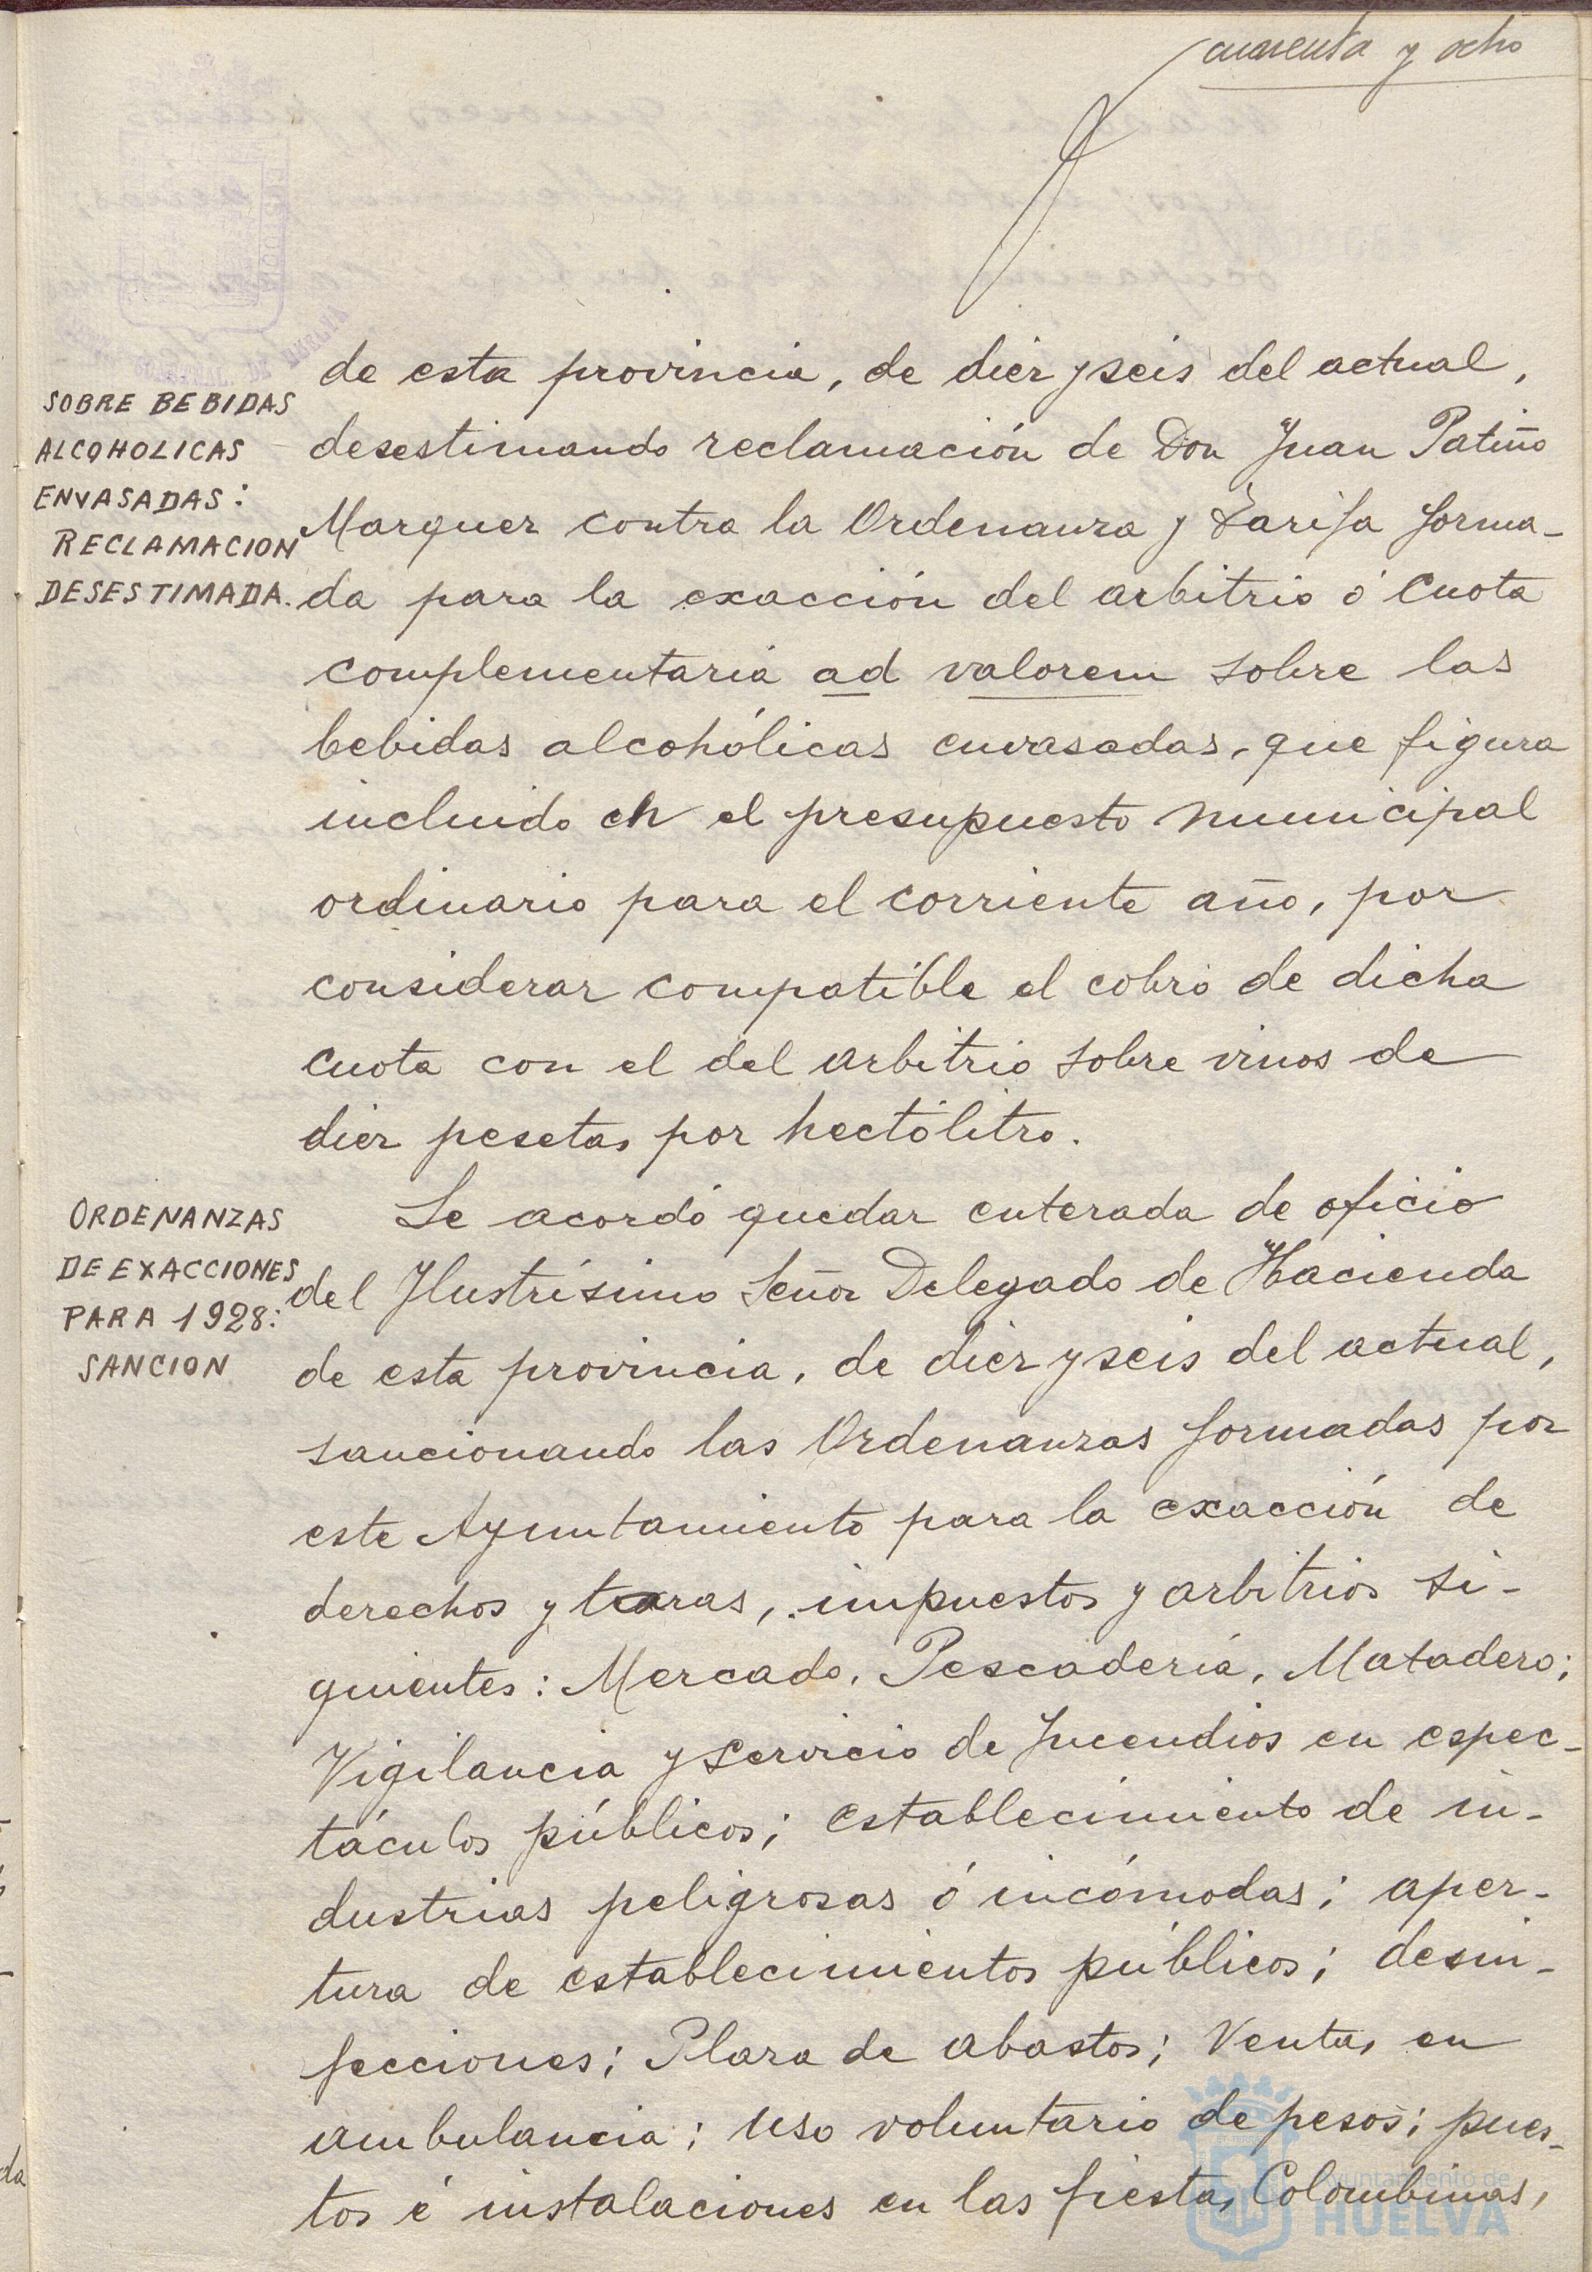 cuarenta y ocho
de esta provincia, de diez y seis del actual,
SOBRE BEBIDAS
ALCOHOLICAS
ENVASADAS:
RECLAMACION
DESESTIMADA.
desestimando reclamación de Don Juan Patiño
Marquez contra la Ordenanza y Tarifa forma-
da para la exacción del arbitrio ó cuota
complementaria ad valorem sobre las
bebidas alcohólicas envasadas, que figura
incluido en el presupuesto municipal
ordinario para el corriente año, por
considerar compatible el cobro de dicha
cuota con el del arbitrio sobre vinos de
diez pesetas por hectólitro.
ORDENANZAS
DE EXACCIONES
PARA 1928:
SANCION
Se acordó quedar enterada de oficio
del Ilustrísimo Señor Delegado de Hacienda
de esta provincia, de diez y seis del actual,
sancionando las Ordenanzas formadas por
este Ayuntamiento para la exacción de
derechos y tasas, impuestos y arbitrios si-
guientes: Mercado, Pescadería, Matadero;
Vigilancia y servicio de Incendios en espec-
táculos públicos; establecimiento de in-
dustrias peligrosas ó incómodas; aper-
tura de establecimientos públicos; desin-
fecciones; Plaza de abastos; Ventas en
ambulancia; uso voluntario de pesos; pues-
tos é instalaciones en las fiestas Colombinas,
Ayuntamiento de
HUELVA